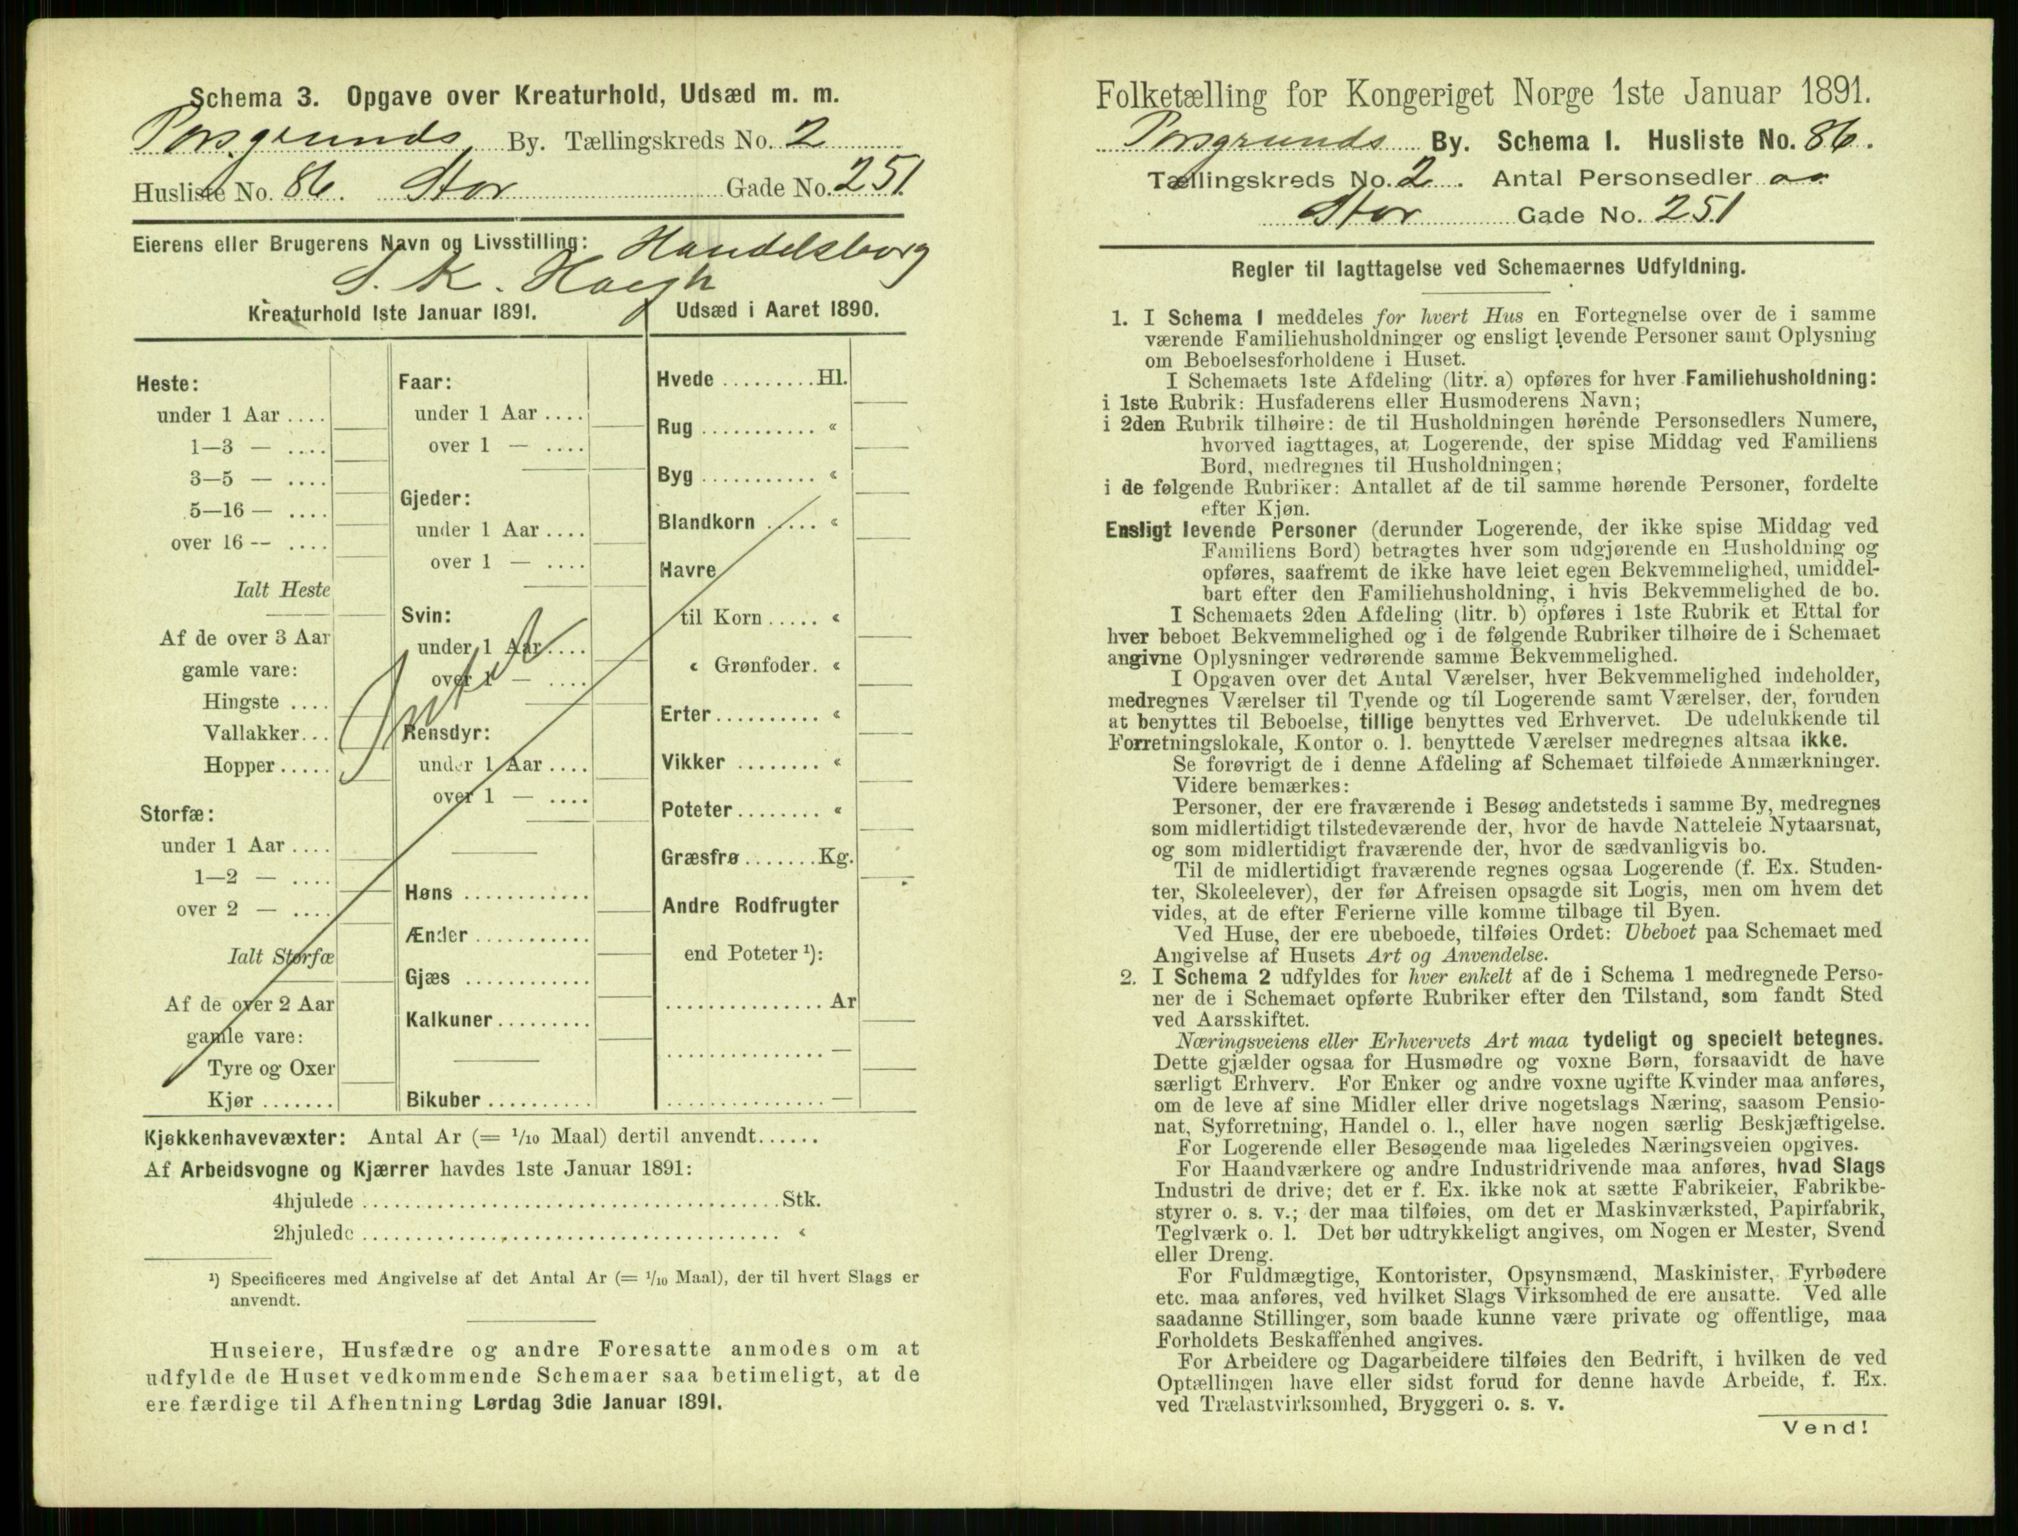 Schema 3. Opgave over Kreaturhold, Udsæd m. m.
Porsgrunds By. Tællingskreds No. 2
Husliste No. 86. Stor Gade No. 251.
Eierens eller Brugerens Navn og Livsstilling: Handelsborg
S. K. Haegh
Kreaturhold 1ste Januar 1891.
Heste:
under 1 Aar ....
1—3 — ....
3—5 — ....
5—16 — ....
over 16 -- ....
Ialt Heste
Af de over 3 Aar
gamle vare:
Hingste ....
Vallakker...
Hopper.....
Storfæ:
under 1 Aar ....
1—2 — ....
over 2 — ....
Ialt Storfæ
Af de over 2 Aar
gamle vare:
Tyre og Oxer
Kjør .......
Faar:
under 1 Aar ....
over 1 — ....
Gjeder:
under 1 Aar ....
over 1 — ....
Svin:
under 1 Aar ....
over 1 — ....
Intet
Rensdyr:
under 1 Aar ....
over 1 — ....
Høns ............
Ænder ...........
Gjæs ............
Kalkuner.........
Bikuber ..........
Udsæd i Aaret 1890.
Hvede .........Hl.
Rug ........... «
Byg ........... «
Blandkorn ..... «
Havre
til Korn ..... «
« Grønfoder. «
Erter.......... «
Vikker ........ «
Poteter........ «
Græsfrø.......Kg.
Andre Rodfrugter
end Poteter ¹):
............... Ar
............... —
............... —
Kjøkkenhavevæxter: Antal Ar (= 1/10 Maal) dertil anvendt......
Af Arbeidsvogne og Kjærrer havdes 1ste Januar 1891:
4hjulede ......................................Stk.
2hjulede ...................................... «
¹) Specificeres med Angivelse af det Antal Ar (= 1/10 Maal), der til hvert Slags er
anvendt.
Huseiere, Husfædre og andre Foresatte anmodes om at
udfylde de Huset vedkommende Schemaer saa betimeligt, at de
ere færdige til Afhentning Lørdag 3die Januar 1891.
Folketælling for Kongeriget Norge 1ste Januar 1891.
Porsgrunds By. Schema 1. Husliste No. 86.
Tællingskreds No. 2. Antal Personsedler
Stor Gade No. 251
Regler til Iagttagelse ved Schemaernes Udfyldning.
1. I Schema 1 meddeles for hvert Hus en Fortegnelse over de i samme
værende Familiehusholdninger og ensligt levende Personer samt Oplysning
om Beboelsesforholdene i Huset.
I Schemaets 1ste Afdeling (litr. a) opføres for hver Familiehusholdning:
i 1ste Rubrik: Husfaderens eller Husmoderens Navn;
i 2den Rubrik tilhøire: de til Husholdningen hørende Personsedlers Numere,
hvorved iagttages, at Logerende, der spise Middag ved Familiens
Bord, medregnes til Husholdningen;
i de følgende Rubriker: Antallet af de til samme hørende Personer, fordelte
efter Kjøn.
Ensligt levende Personer (derunder Logerende, der ikke spise Middag ved
Familiens Bord) betragtes hver som udgjørende en Husholdning og
opføres, saafremt de ikke have leiet egen Bekvemmelighed, umiddel-
bart efter den Familiehusholdning, i hvis Bekvemmelighed de bo.
I Schemaets 2den Afdeling (litr. b) opføres i 1ste Rubrik et Ettal for
hver beboet Bekvemmelighed og i de følgende Rubriker tilhøire de i Schemaet
angivne Oplysninger vedrørende samme Bekvemmelighed.
I Opgaven over det Antal Værelser, hver Bekvemmelighed indeholder,
medregnes Værelser til Tyende og til Logerende samt Værelser, der, foruden
at benyttes til Beboelse, tillige benyttes ved Erhvervet. De udelukkende til
Forretningslokale, Kontor o. l. benyttede Værelser medregnes altsaa ikke.
Se forøvrigt de i denne Afdeling af Schemaet tilføiede Anmærkninger.
Videre bemærkes:
Personer, der ere fraværende i Besøg andetsteds i samme By, medregnes
som midlertidigt tilstedeværende der, hvor de havde Natteleie Nytaarsnat,
og som midlertidigt fraværende der, hvor de sædvanligvis bo.
Til de midlertidigt fraværende regnes ogsaa Logerende (f. Ex. Studen-
ter, Skoleelever), der før Afreisen opsagde sit Logis, men om hvem det
vides, at de efter Ferierne ville komme tilbage til Byen.
Ved Huse, der ere ubeboede, tilføies Ordet: Ubeboet paa Schemaet med
Angivelse af Husets Art og Anvendelse.
2. I Schema 2 udfyldes for hver enkelt af de i Schema 1 medregnede Perso-
ner de i Schemaet opførte Rubriker efter den Tilstand, som fandt Sted
ved Aarsskiftet.
Næringsveiens eller Erhvervets Art maa tydeligt og specielt betegnes.
Dette gjælder ogsaa for Husmødre og voxne Børn, forsaavidt de have
særligt Erhverv. For Enker og andre voxne ugifte Kvinder maa anføres,
om de leve af sine Midler eller drive nogetslags Næring, saasom Pensio-
nat, Syforretning, Handel o. l., eller have nogen særlig Beskjæftigelse.
For Logerende eller Besøgende maa ligeledes Næringsveien opgives.
For Haandværkere og andre Industridrivende maa anføres, hvad Slags
Industri de drive; det er f. Ex. ikke nok at sætte Fabrikeier, Fabrikbe-
styrer o. s. v.; der maa tilføies, om det er Maskinværksted, Papirfabrik,
Teglværk o. l. Det bør udtrykkeligt angives, om Nogen er Mester, Svend
eller Dreng.
For Fuldmægtige, Kontorister, Opsynsmænd, Maskinister, Fyrbødere
etc. maa anføres, ved hvilket Slags Virksomhed de ere ansatte. Ved alle
saadanne Stillinger, som baade kunne være private og offentlige, maa
Forholdets Beskaffenhed angives.
For Arbeidere og Dagarbeidere tilføies den Bedrift, i hvilken de ved
Optællingen have eller sidst forud for denne havde Arbeide, f. Ex.
ved Trælastvirksomhed, Bryggeri o. s. v.
Vend!